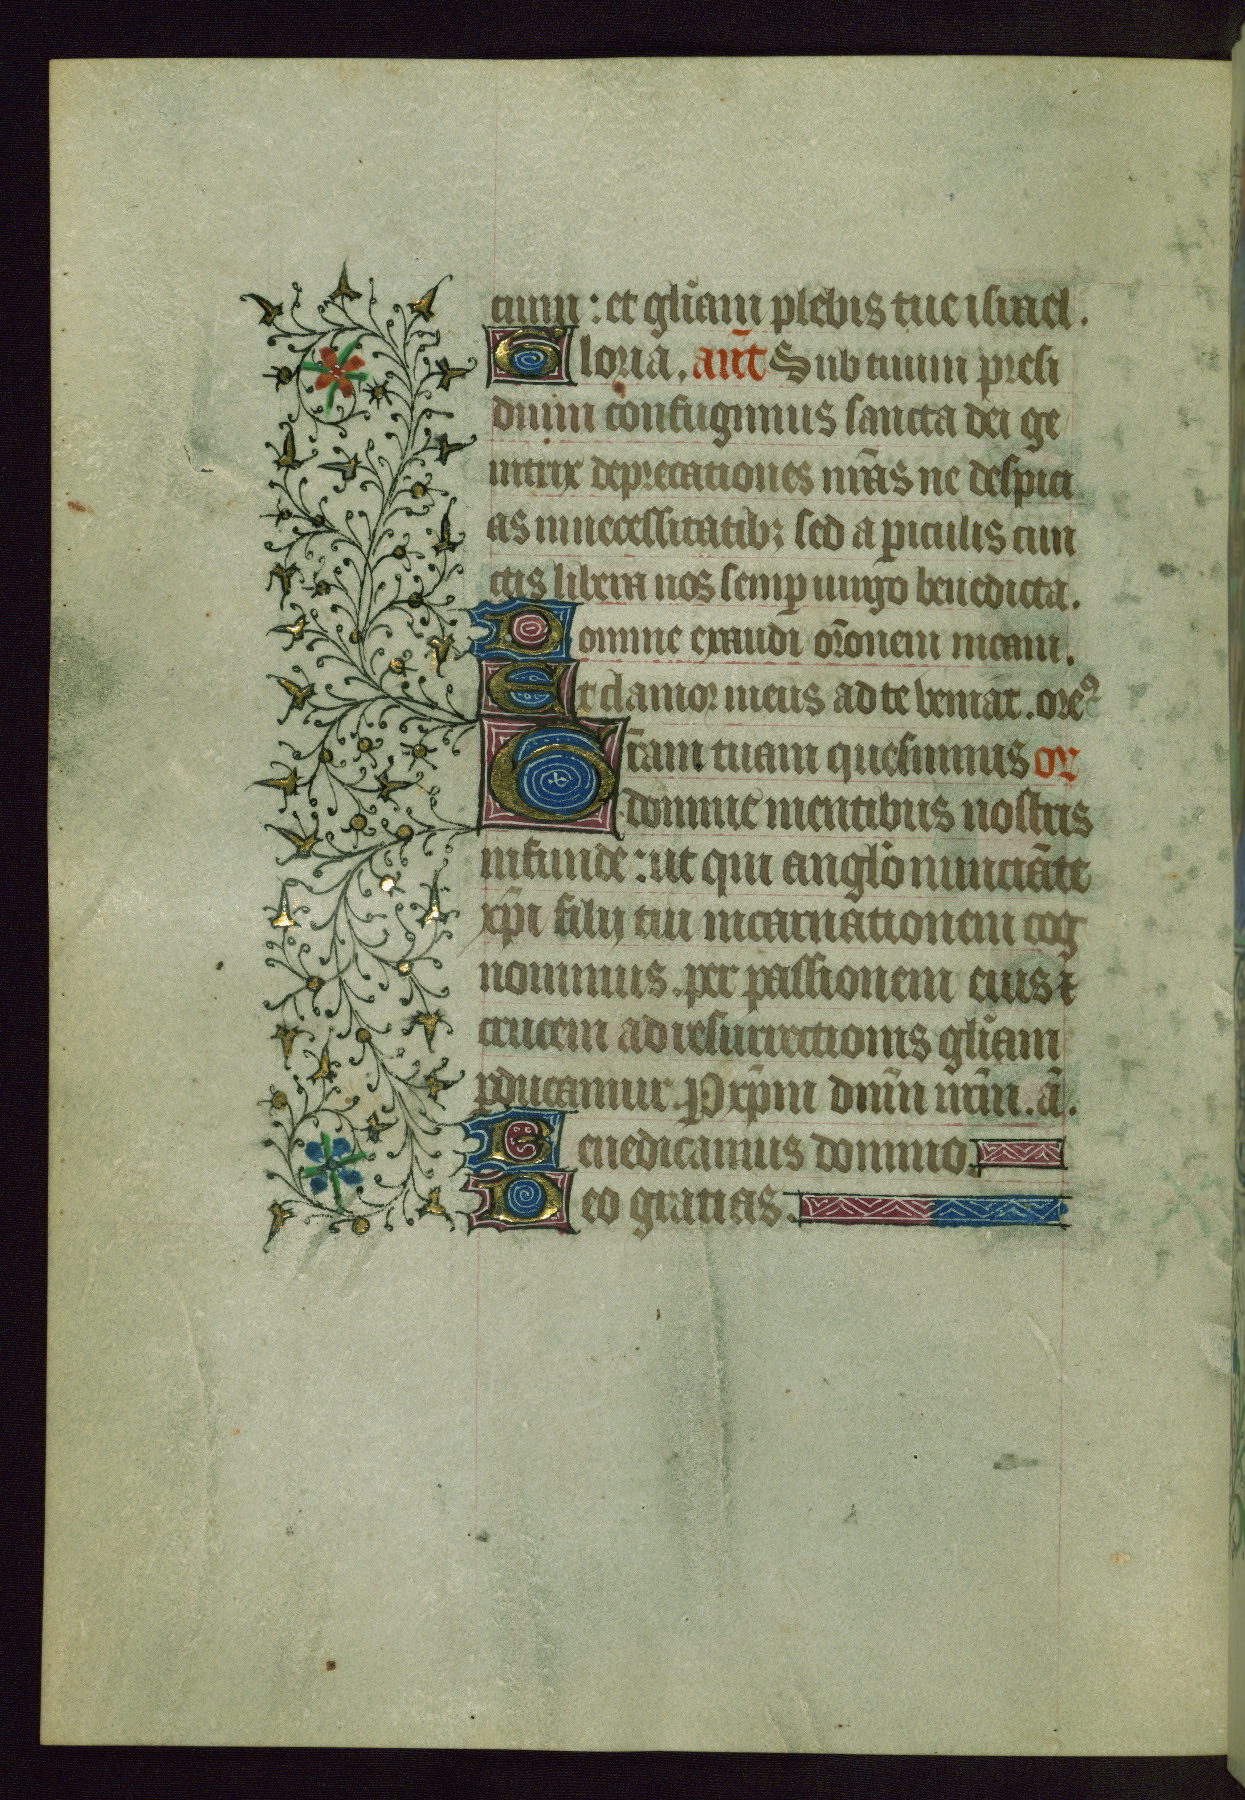 cium : et gl̄iam plebis tue israel.
Gloria. an̄t Sub tuum presi
dium confugimus sancta dei ge
nitrix deprecationes nr̄as ne despici
as in necessitatibꝫ sed a ꝑiculis cun
ctis libera nos semꝑ uirgo benedicta.
Domine exaudi or̄onem meam.
Et clamor meus ad te veniat. oreꝰ
Gr̄am tuam quesumus or̄
domine mentibus nostris
infunde : ut qui angl̄o nunciāte
xp̄i filij tui incarnationem cog
nouimus. per passionem eius ⁊
crucem ad resurrectionis gl̄iam
ꝑducamur. P xp̄m dn̄m nr̄m. ā.
Benedicamus domino.
Deo gratias.